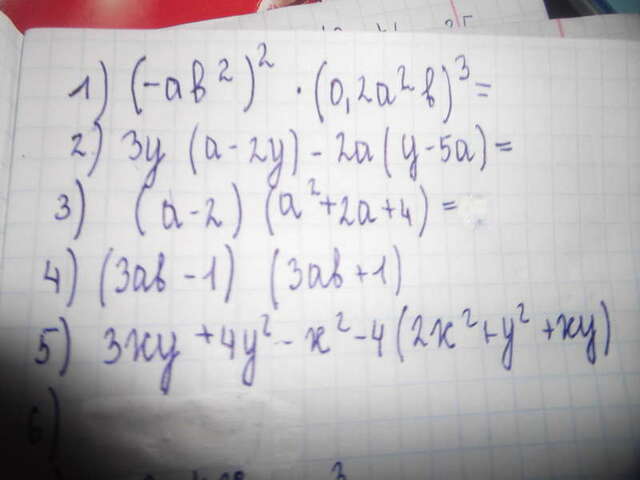 1) (-ab²)² · (0,2a²b)³ =
2) 3y (a - 2y) - 2a (y - 5a) =
3) (a - 2) (a² + 2a + 4) =
4) (3ab - 1) (3ab + 1)
5) 3xy + 4y² - x² - 4 (2x² + y² + xy)
6)